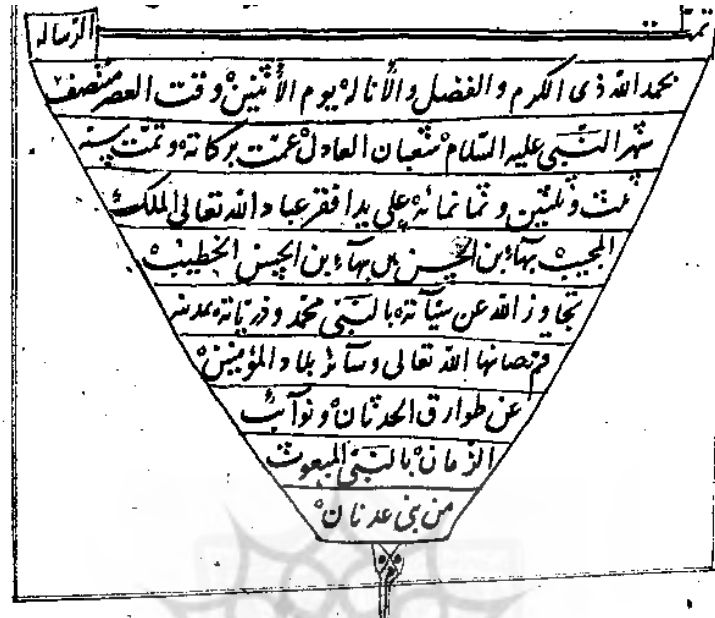 تمت الرساله
بحمد الله ذی الکرم والفضل والأناله یوم الأثنین وقت العصر منتصف
شهر النّبی علیه السّلام شعبان العادل عمّت برکاته وتمّت سنه
ثلث وثلثین وثمانمائه علی ید افقر عباد الله تعالی الملک
المجیب بهاء بن الحسن بن بهاء بن الحسن الخطیب
تجاوز الله عن سیّآته بالنّبی محمّد وذرّیاته بمدینه
قم صانها الله تعالی وسائر بلاد المؤمنین
عن طوارق الحدثان ونوآئب
الزمان بالنّبی المبعوث
من بنی عدنان